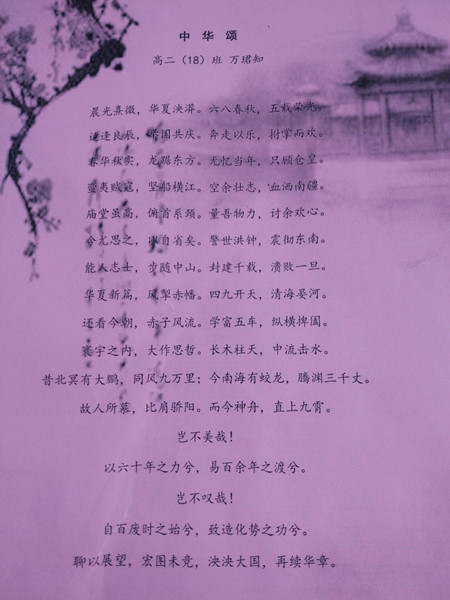 中华颂
高二（18）班 万珺知
晨光熹微，华夏泱漭。六八春秋，五载荣光。
逢良辰，国共庆。奔走以乐，拊掌而欢。
春华秋实，龙踞东方。无忆当年，只顾仓皇。
蛮夷贼寇，坚船横江。空余壮志，血洒南疆。
庙堂虽高，俯首系颈。量吾物力，讨余欢心。
今尤思之，自省矣。警世洪钟，震彻东南。
能人志士，步随中山。封建千载，溃败一旦。
华夏新篇，风掣赤幡。四九开天，清海晏河。
还看今朝，赤子风流。学富五车，纵横捭阖。
寰宇之内，大作思哲。长木柱天，中流击水。
昔北冥有大鹏，同风九万里；今南海有蛟龙，腾渊三千丈。
故人所慕，比肩骄阳。而今神舟，直上九霄。
岂不美哉！
以六十年之力兮，易百余年之渡兮。
岂不叹哉！
自百废时之始兮，致造化势之功兮。
聊以展望，宏图未竞，泱泱大国，再续华章。